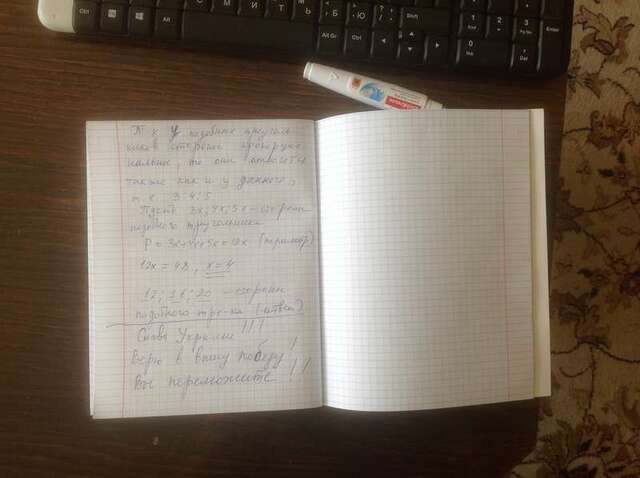 Т к у подобных треуголь
ников стороны пропорцио
нальны, то они относятся
так же как и у данного,
т. к. 3:4:5
Пусть 3x; 4x; 5x - стороны
подобного треугольника
P = 3x+4x+5x=12x (периметр)
12x = 48, x=4
12; 16; 20 - стороны
подобного тре-ка (ответ)
Слава Украине!!!
Верю в вашу победу!
Вы переможите!!
Shift
Ctrl
Alt
Alt Gr
Ctrl
Enter